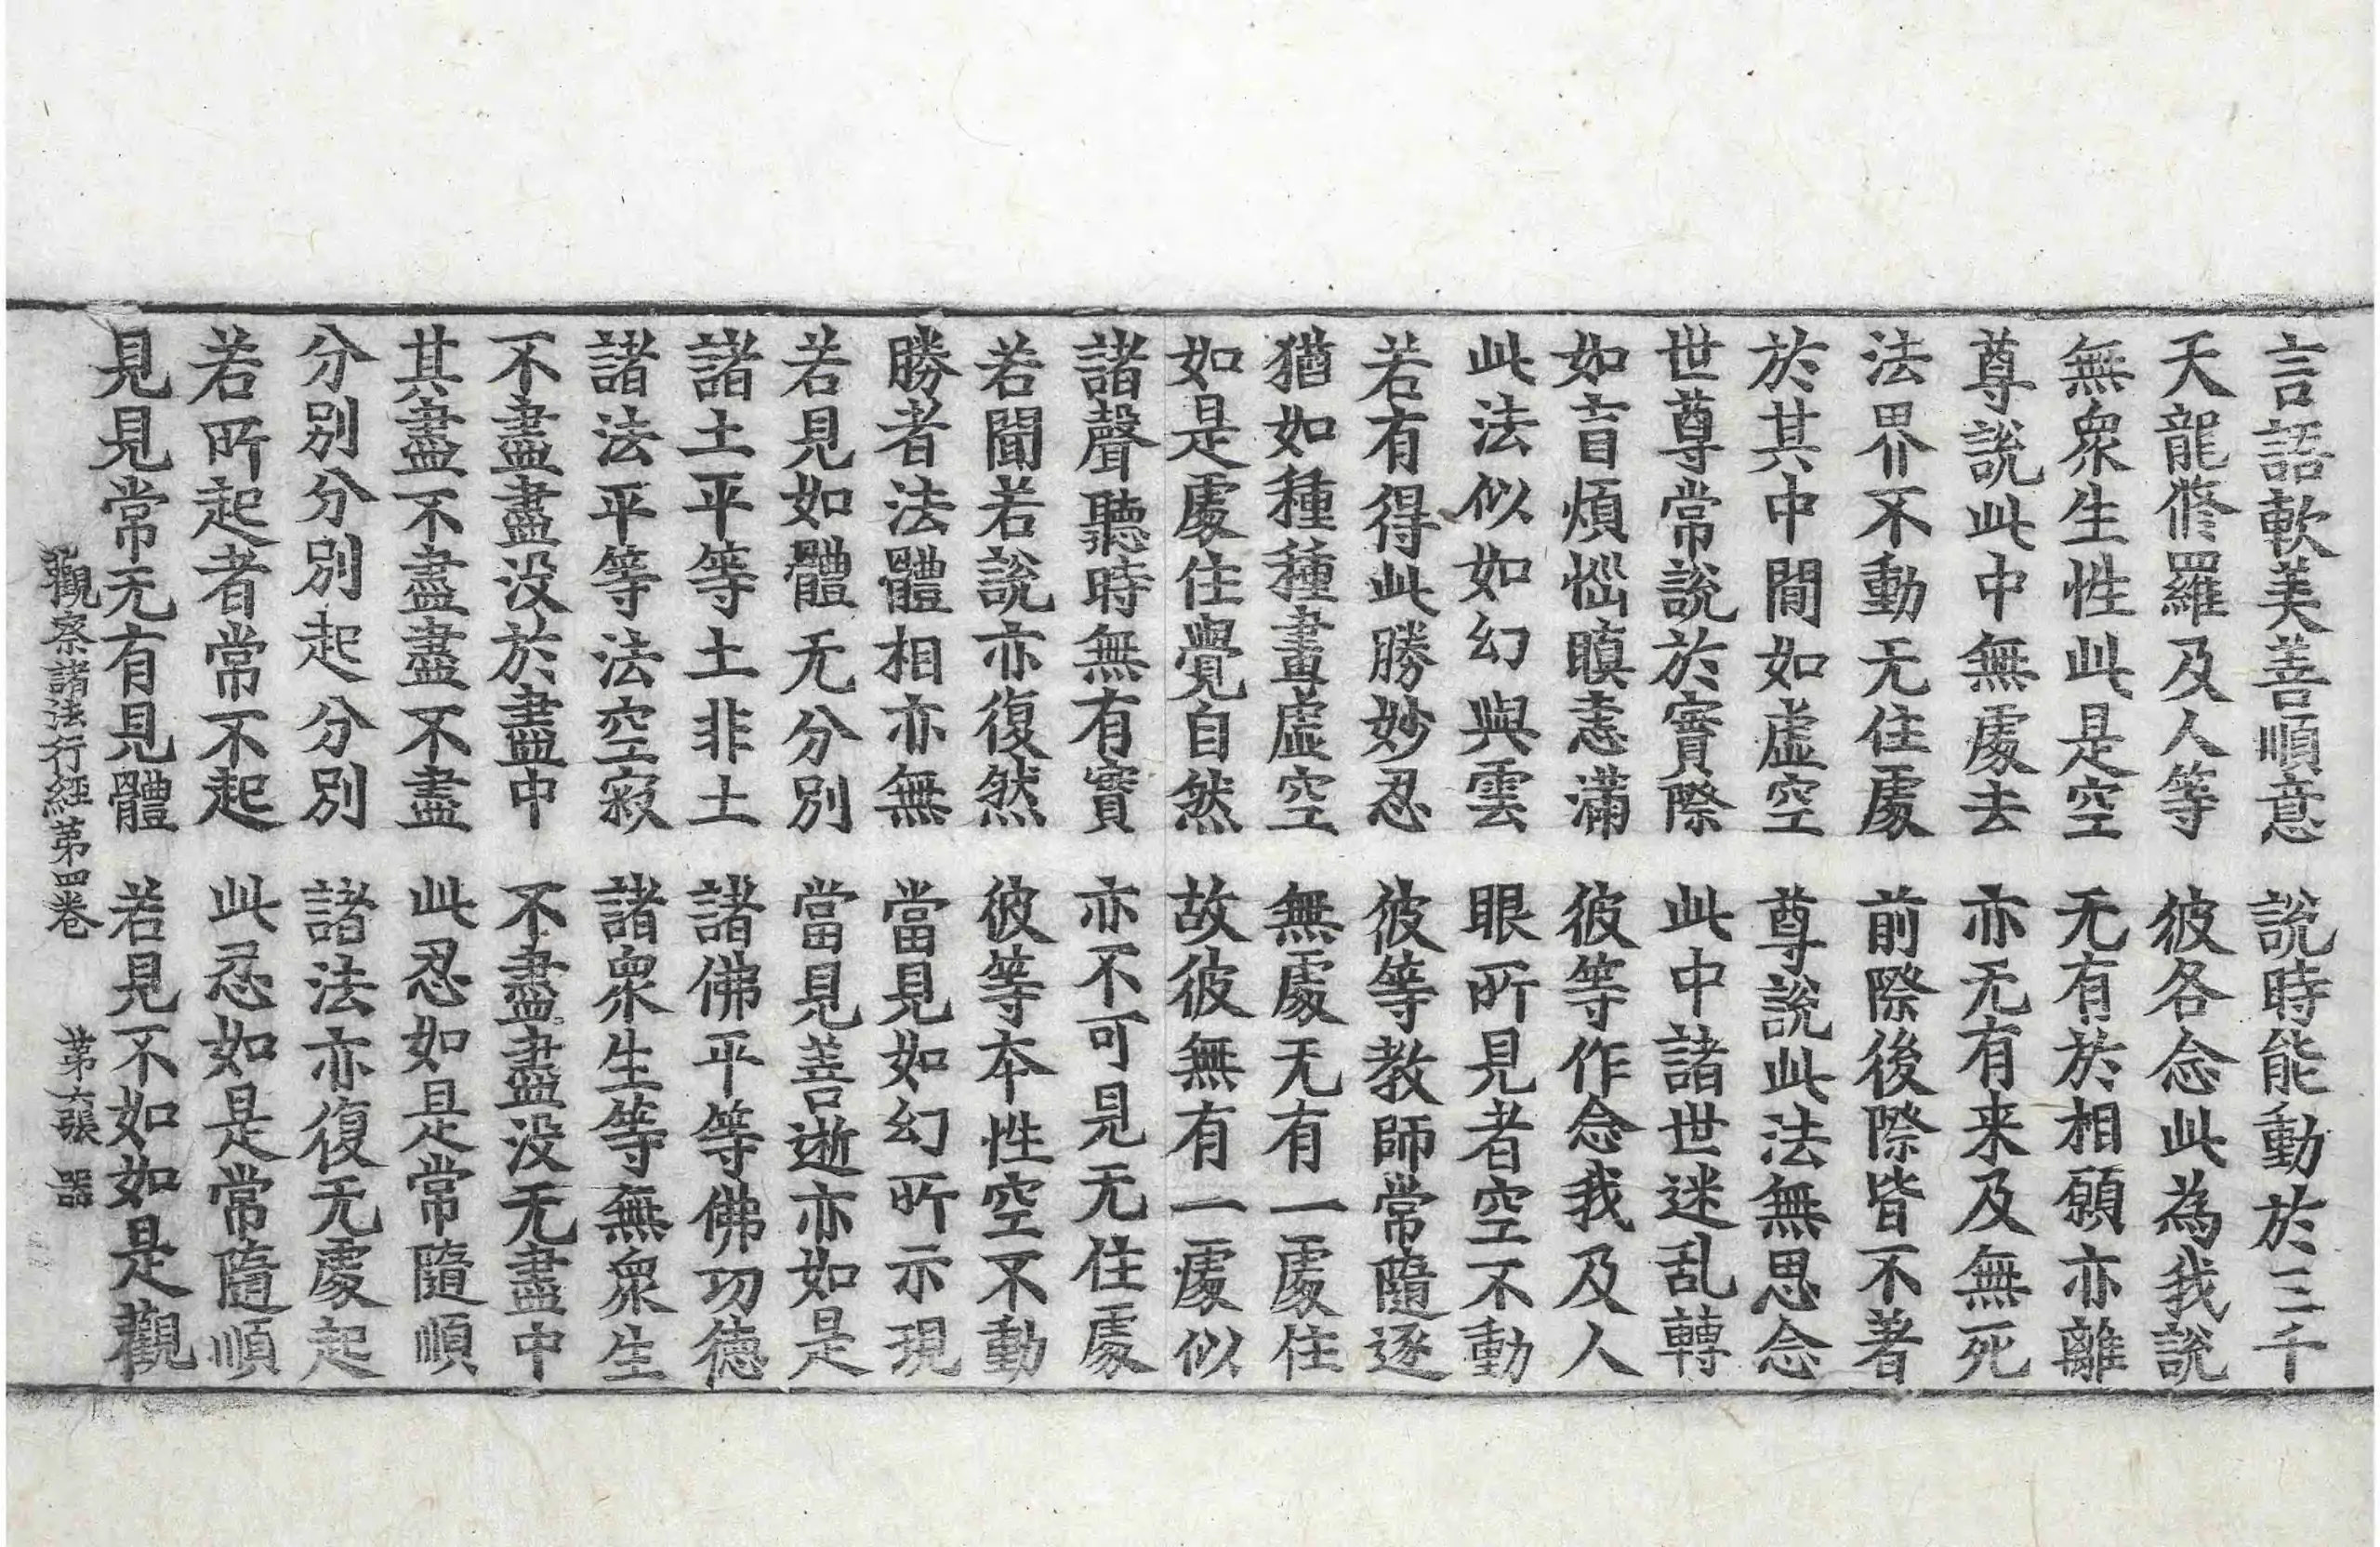 言語軟美善順意　說時能動於三千
天龍脩羅及人等　彼各念此為我說
無衆生性此是空　无有於相願亦離
尊說此中無處去　亦无有来及無死
法界不動无住處　前際後際皆不著
於其中間如虛空　尊說此法無思念
世尊常說於實際　此中諸世迷乱轉
如盲煩惱瞋恚滿　彼等作念我及人
此法似如幻與雲　眼所見者空不動
若有得此勝妙忍　彼等教師常隨逐
猶如種種畫虛空　無處无有一處住
如是處住覺自然　故彼無有一處似
諸聲聽時無有實　亦不可見无住處
若聞若說亦復然　彼等本性空不動
勝者法體相亦無　當見如幻所示現
若見如體无分別　當見善逝亦如是
諸土平等土非土　諸佛平等佛功德
諸法平等法空寂　諸衆生等無衆生
不盡盡没於盡中　不盡盡没无盡中
其盡不盡盡不盡　此忍如是常隨順
分別分別起分別　諸法亦復无處起
若所起者常不起　此忍如是常隨順
見見常无有見體　若見不如如是觀
觀察諸法行經第四卷　第六張　器